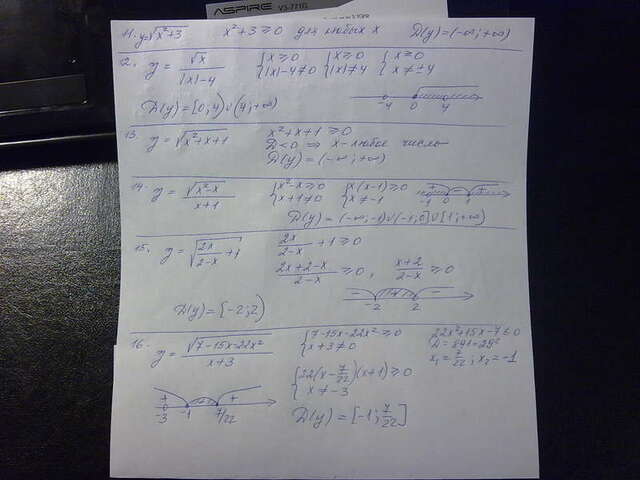 ASPIRE V3-771G
11. y=√x²+3 x²+3≥0 для любых x D(y)=(-∞;+∞)
12. y=√x/(|x|-4) {x≥0 {|x|-4≠0 {x≥0 {|x|≠4 {x≥0 {x≠±4
D(y)=[0;4)∪(4;+∞) -4 0 4
13. y=√x²+x+1 x²+x+1≥0
D<0 ⇒ x-любое число
D(y)=(-∞;+∞)
14. y=√x²-x/(x+1) {x²-x≥0 {x+1≠0 {x(x-1)≥0 {x≠-1 + - + -1 0 1
D(y)=(-∞;-1)∪(-1;0]∪[1;+∞)
15. y=√(2x/(2-x)+1) 2x/(2-x)+1≥0
(2x+2-x)/(2-x)≥0, (x+2)/(2-x)≥0
D(y)=[-2;2) - + - -2 2
16. y=√7-15x-22x²/(x+3) {7-15x-22x²≥0 {x+3≠0 22x²+15x-7≤0
D=841=29²
x₁=7/22; x₂=-1
{22(x-7/22)(x+1)≥0 {x≠-3
+ - + -3 -1 7/22
D(y)=[-1;7/22]